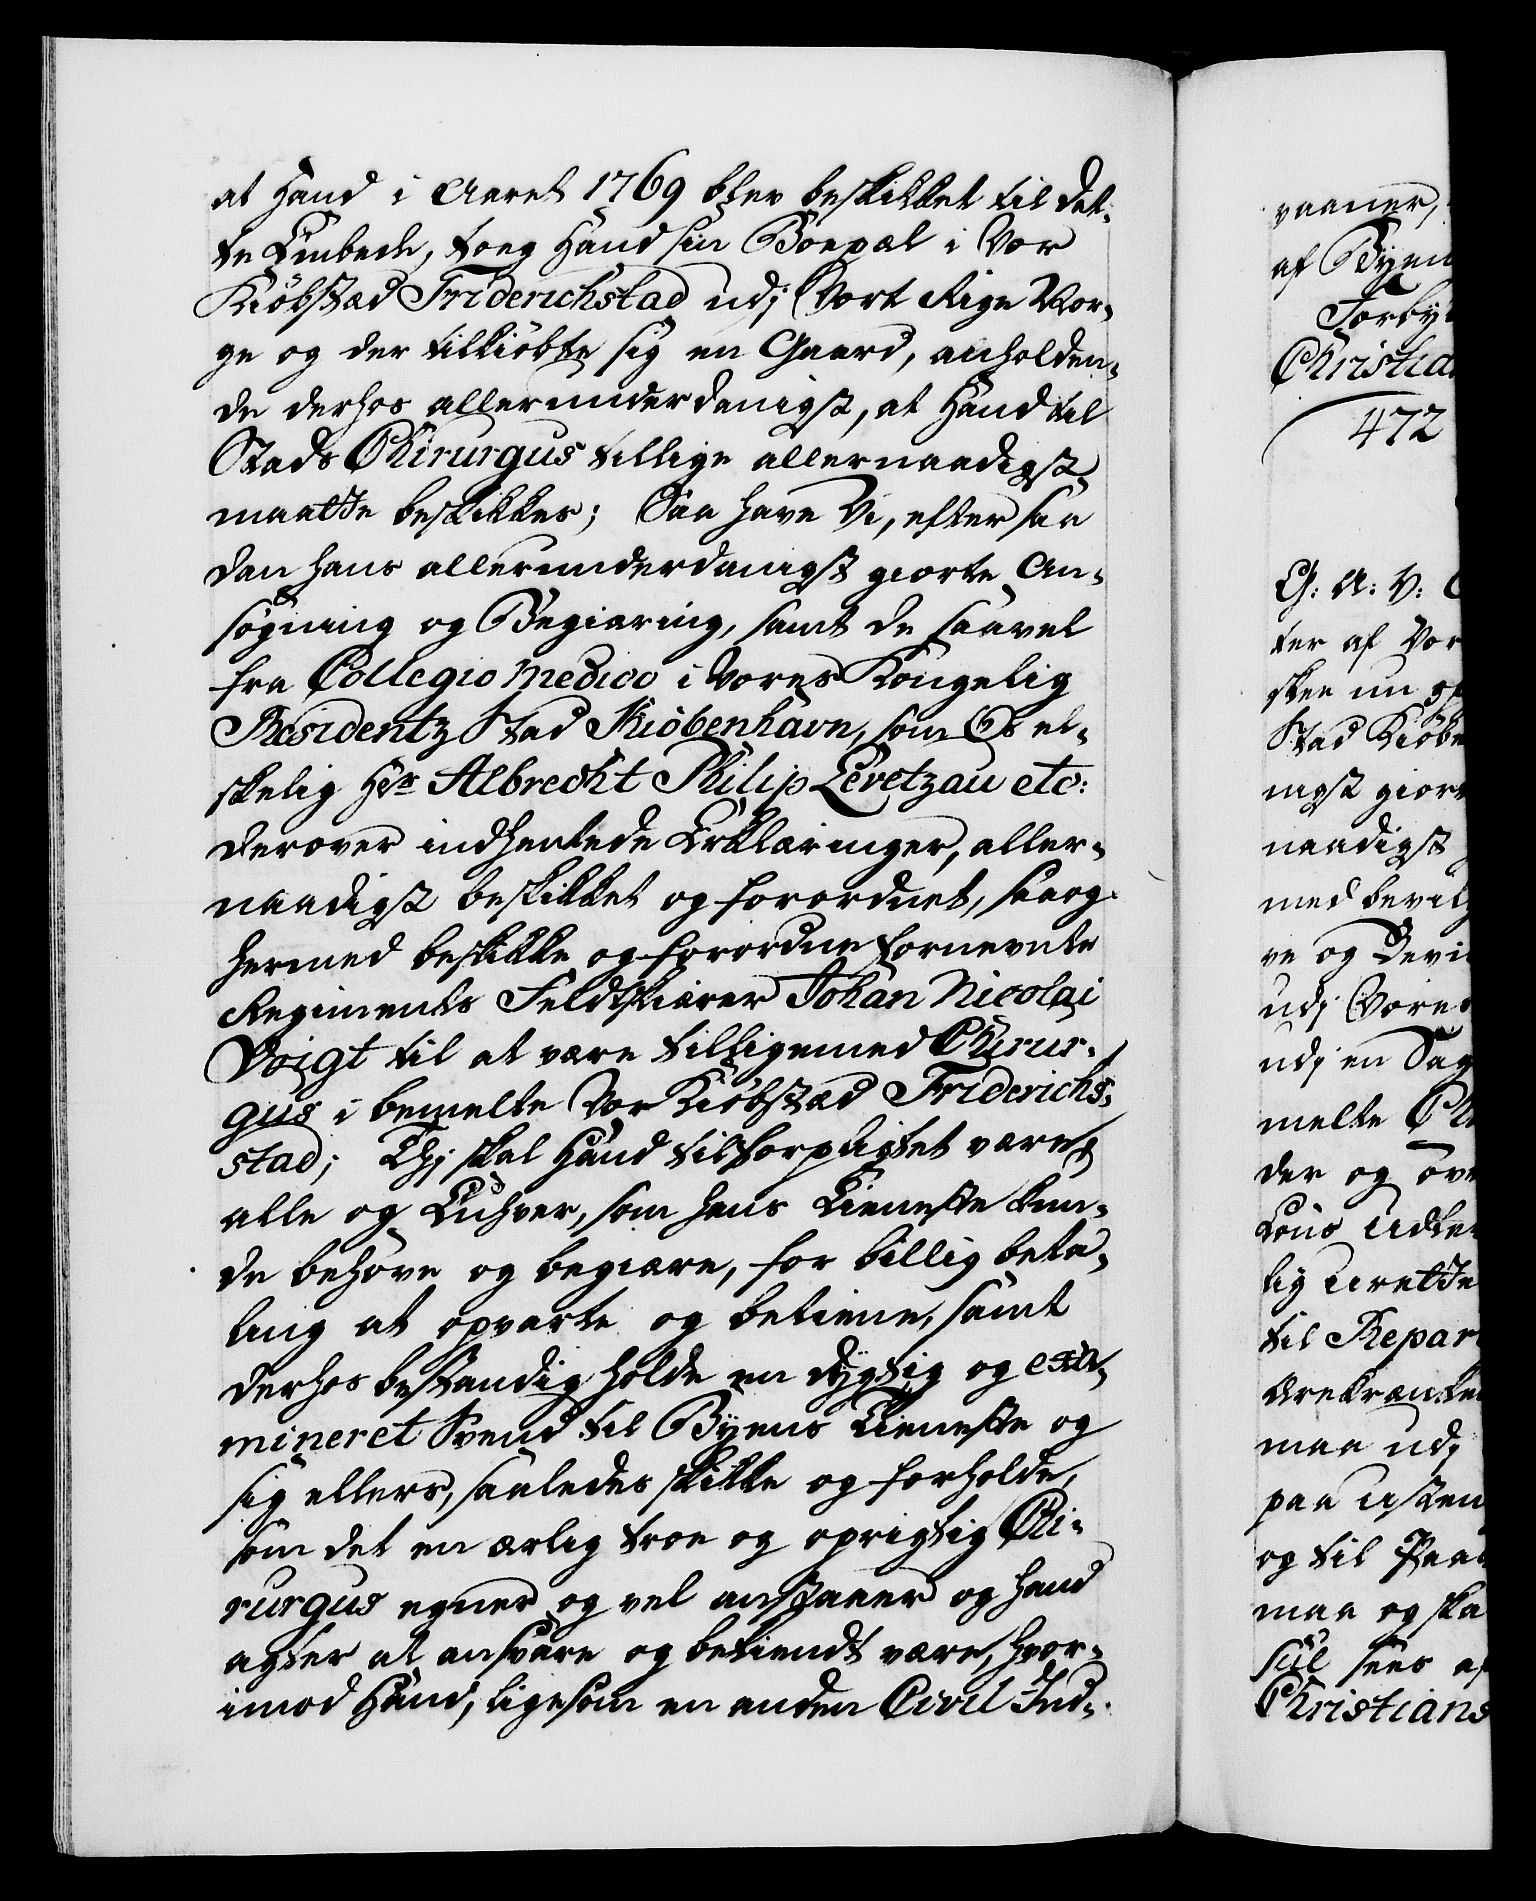 at Hand i Aaret 1769 blev beskikket til det-
te Embede, toeg Hand sin Boepæl i Vor
Kiöbstæd Friderichstad udj Vort Rige Nor-
ge og der tilkiöbte sig en Gaard, anholden-
de derhos allerunderdanigst, at Hand til
Stads Chirurgus tillige allernaadigst
maatte beskikkes; Saa have Vi, efter saa
dan hans allerunderdanigst giorte An-
søgning og Begiæring, samt de saavel
fra Collegio Medico i Vores Kongelig
Residentz Stad Kiöbenhavn, som Os el-
skelig Hr Albrecht Philip Levetzau etc:
derover indhentede Erklæringer, aller-
naadigst beskikket og forordnet, saa og
hermed beskikke og forordne fornevnte
Regiments Feldtskiærer Johan Nicolai
Voigt til at være tilligemed Chirur-
gus i bemelte Vor Kiöbstæd Friderichs-
stad; Thj skal Hand tilforpligtet være,
alle og Enhver, som hans Tieneste kun-
de behøve og begiære, for billig beta-
ling at opvarte og betiene, samt
derhos bestandig holde en dygtig og exa-
mineret Svend til Byens Tieneste og
sig ellers, saaledes skikke og forholde,
som det en ærlig troe og oprigtig Chi-
rurgus egner og vel anstaaer og hand
agter at ansvare og bekiendt være, hvor-
imod Hand, ligesom en anden Civil Ind-
vaaner,
af Byen
Forby
Christia
472
G: A: V:
ter af Vor
skee nu
Stad Kiöbe
nigst giort
naadigst
med bevil
ve og Devi
udj Vores
udj en Sag
melte Ch
der og öv
Lous Udste
lig Urette
til Repar
Ærekrænke
maa udj
paa Usten
og til Paa
maa og ska
sül sees af
Christians